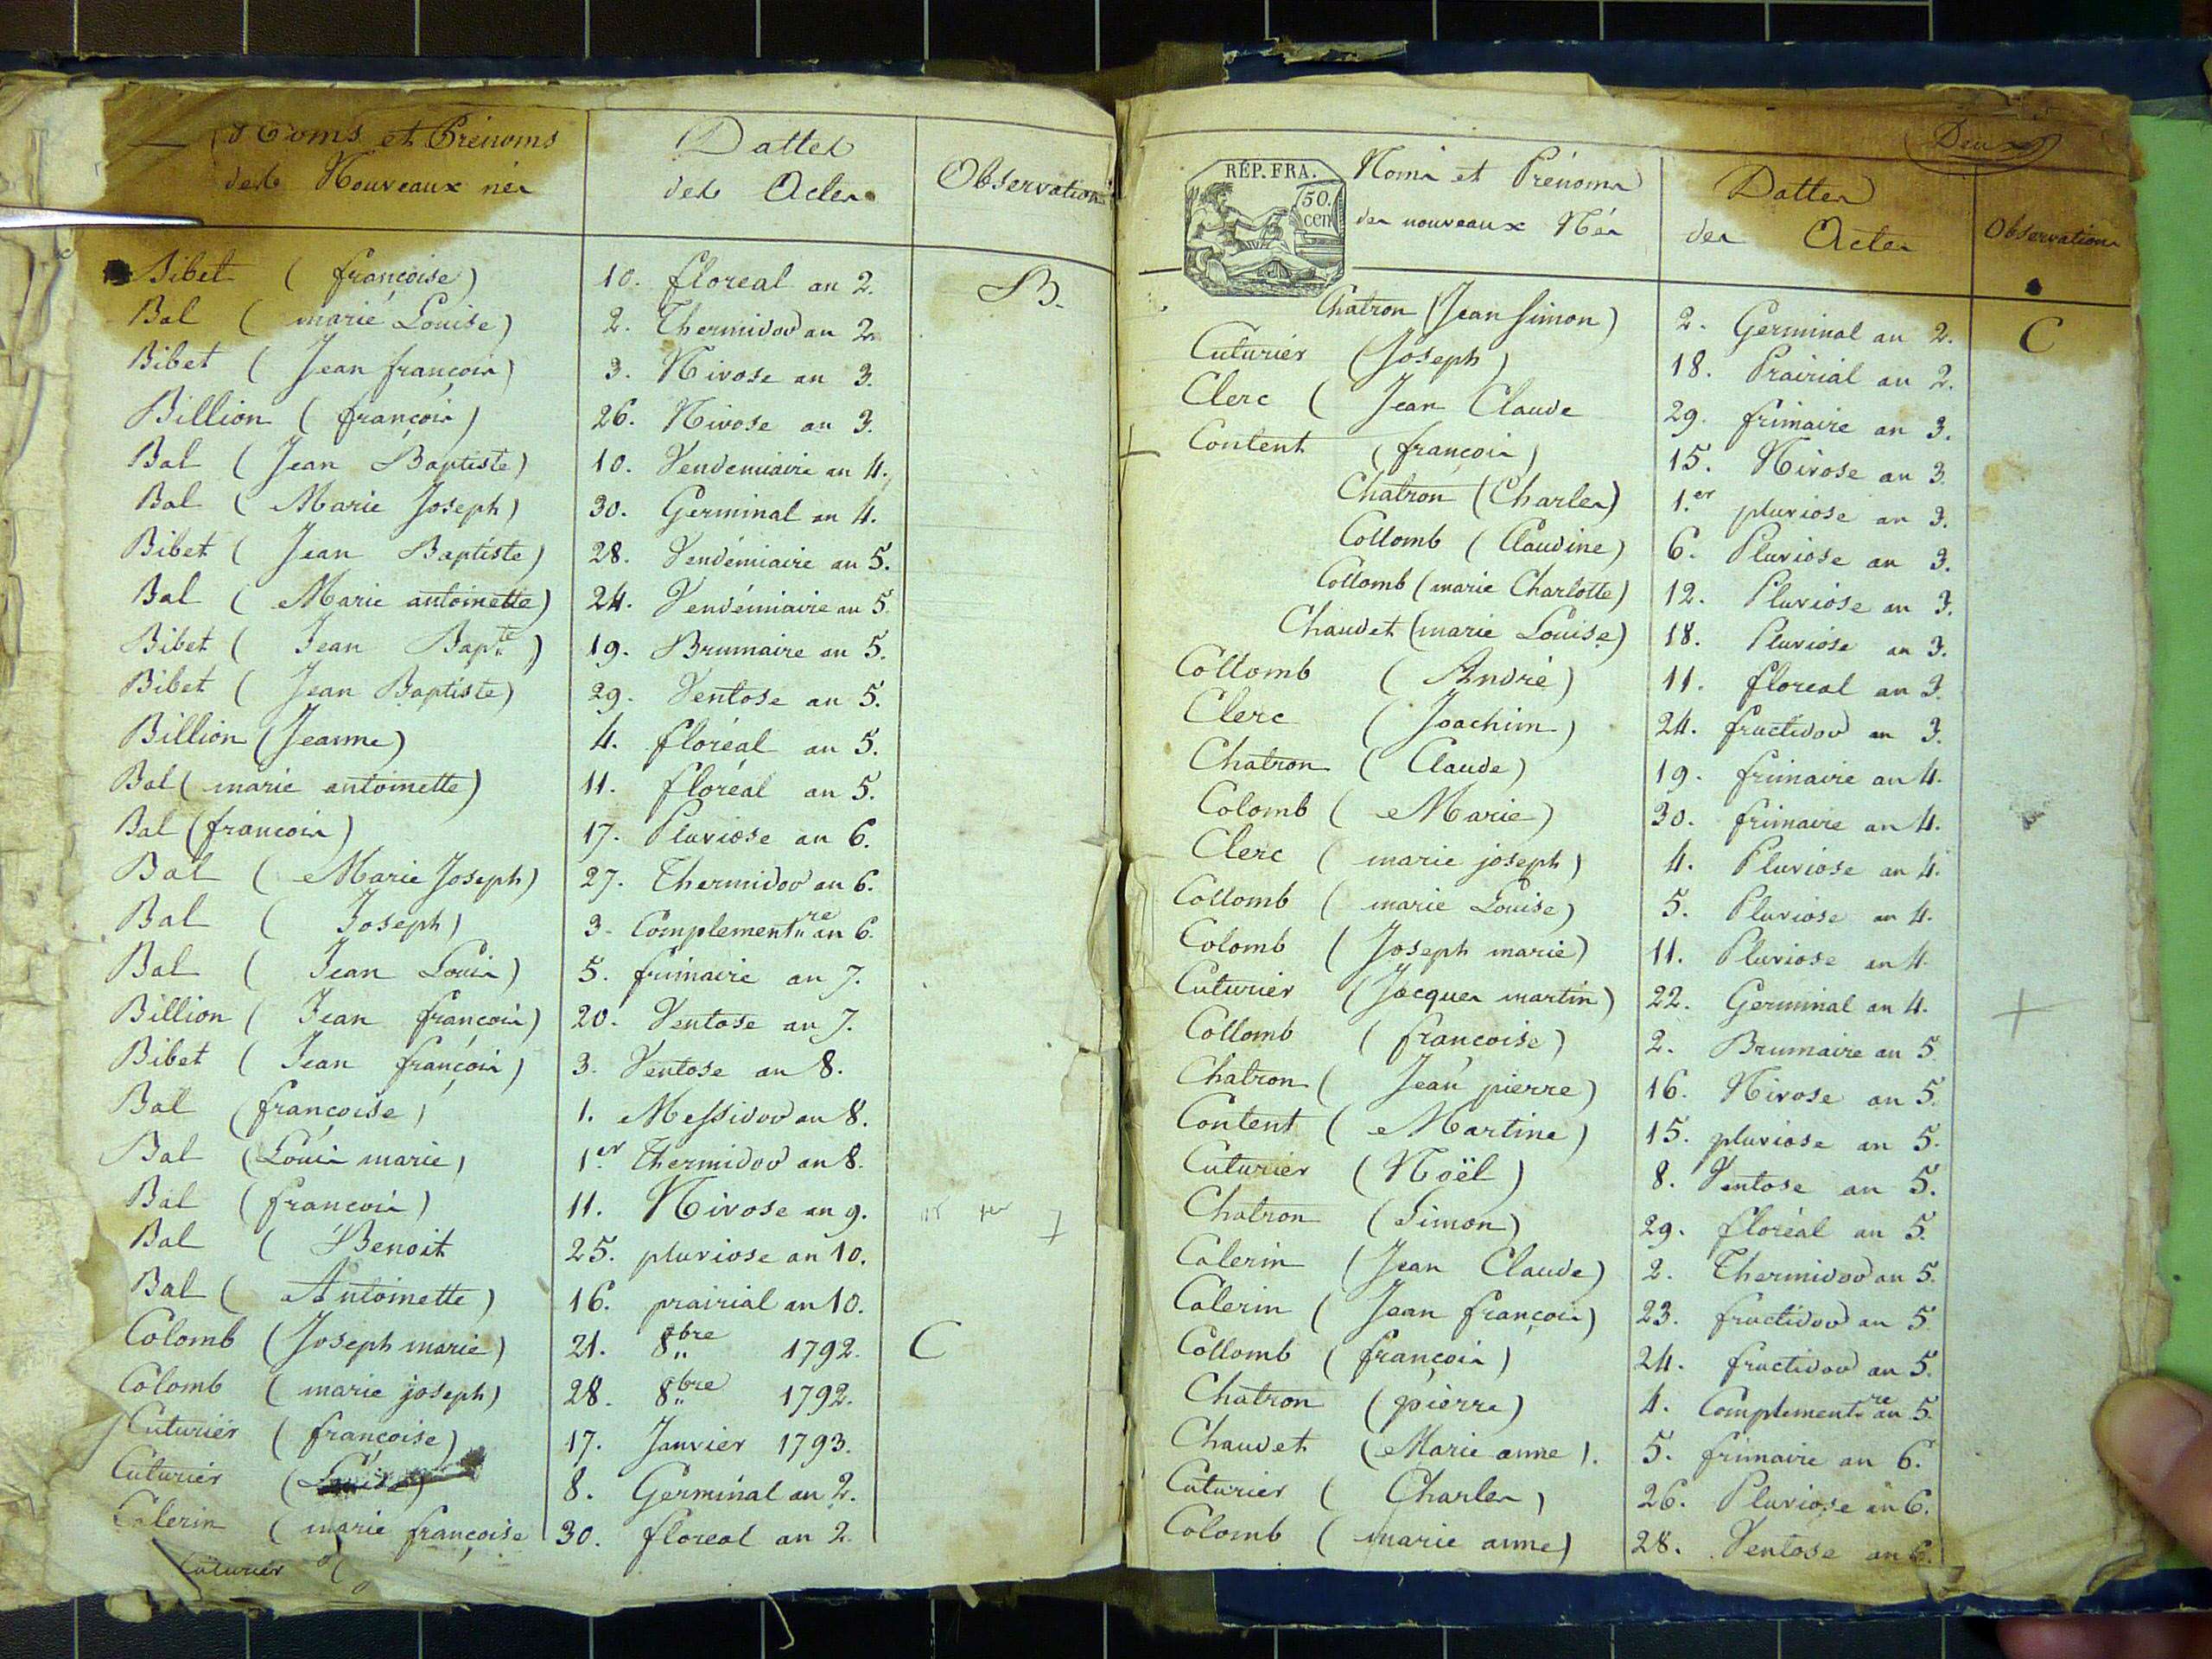 Noms et Prénoms Dattes
des Nouveaux nés des Actes Observations
Bibet (françoise) 10. floreal an 2. B.
Bal (marie Louise) 2. Thermidor an 2.
Bibet (Jean françois) 3. Nivose an 3.
Billion (françois) 26. Nivose an 3.
Bal (Jean Baptiste) 10. Vendemiaire an 4.
Bal (Marie Joseph) 30. Germinal an 4.
Bibet (Jean Baptiste) 28. Vendémiaire an 5.
Bal (Marie antoinette) 24. Vendémiaire an 5.
Bibet (Jean Bapte) 19. Brumaire an 5.
Bibet (Jean Baptiste) 29. Ventose an 5.
Billion (Jeanne) 4. floréal an 5.
Bal (marie antoinette) 11. floréal an 5.
Bal (francois) 17. Pluviose an 6.
Bal (Marie Joseph) 27. Thermidor an 6.
Bal (Joseph) 3. Complementre an 6.
Bal (Jean Louis) 5. frimaire an 7.
Billion (Jean françois) 20. Ventose an 7.
Bibet (Jean françois) 3. Ventose an 8.
Bal (françoise) 1. Messidor an 8.
Bal (Louis marie) 1er Thermidor an 8.
Bal (francois) 11. Nivose an 9.
Bal (Benoit 25. pluviose an 10.
Bal (Antoinette) 16. prairial an 10.
Colomb (Joseph marie) 21. 8bre 1792. C
Colomb (marie joseph) 28. 8bre 1792.
Cuturier (françoise) 17. Janvier 1793.
Cuturier 8. Germinal an 2.
Calerin (marie françoise 30. floreal an 2.
Cuturier (
Deux
RÉP. FRA.
50.
cen
Noms et Prénoms Dattes
des nouveaux Nés des Actes Observations
Chatron (Jean Simon) 2. Germinal an 2. C
Cuturier (Joseph) 18. Prairial an 2.
Clerc (Jean Claude 29. frimaire an 3.
+ Content (françois) 15. Nivose an 3.
Chatron (Charles) 1.er pluviose an 3.
Collomb (Claudine) 6. Pluviose an 3.
Collomb (marie Charlotte) 12. Pluviose an 3.
Chaudet (marie Louise) 18. Pluviose an 3.
Collomb (André) 11. floreal an 3.
Clerc (Joachim) 24. fructidor an 3.
Chatron (Claude) 19. frimaire an 4.
Colomb (Marie) 30. frimaire an 4.
Clerc (marie joseph) 4. Pluviose an 4.
Collomb (marie Louise) 5. Pluviose an 4.
Colomb (Joseph marie) 11. Pluviose an 4.
Cuturier (Jacques martin) 22. Germinal an 4. +
Collomb (francoise) 2. Brumaire an 5.
Chatron (Jean pierre) 16. Nivose an 5.
Content (Martine) 15. pluviose an 5.
Cuturier (Noël) 8. Ventose an 5.
Chatron (Simon) 29. floréal an 5.
Calerin (Jean Claude) 2. Thermidor an 5.
Calerin (Jean françois) 23. fructidor an 5.
Collomb (françois) 24. fructidor an 5.
Chatron (pierre) 4. Complementre an 5.
Chaudet (Marie anne). 5. frimaire an 6.
Cuturier (Charles) 26. Pluviose an 6.
Colomb (marie anne) 28. Ventose an 6.